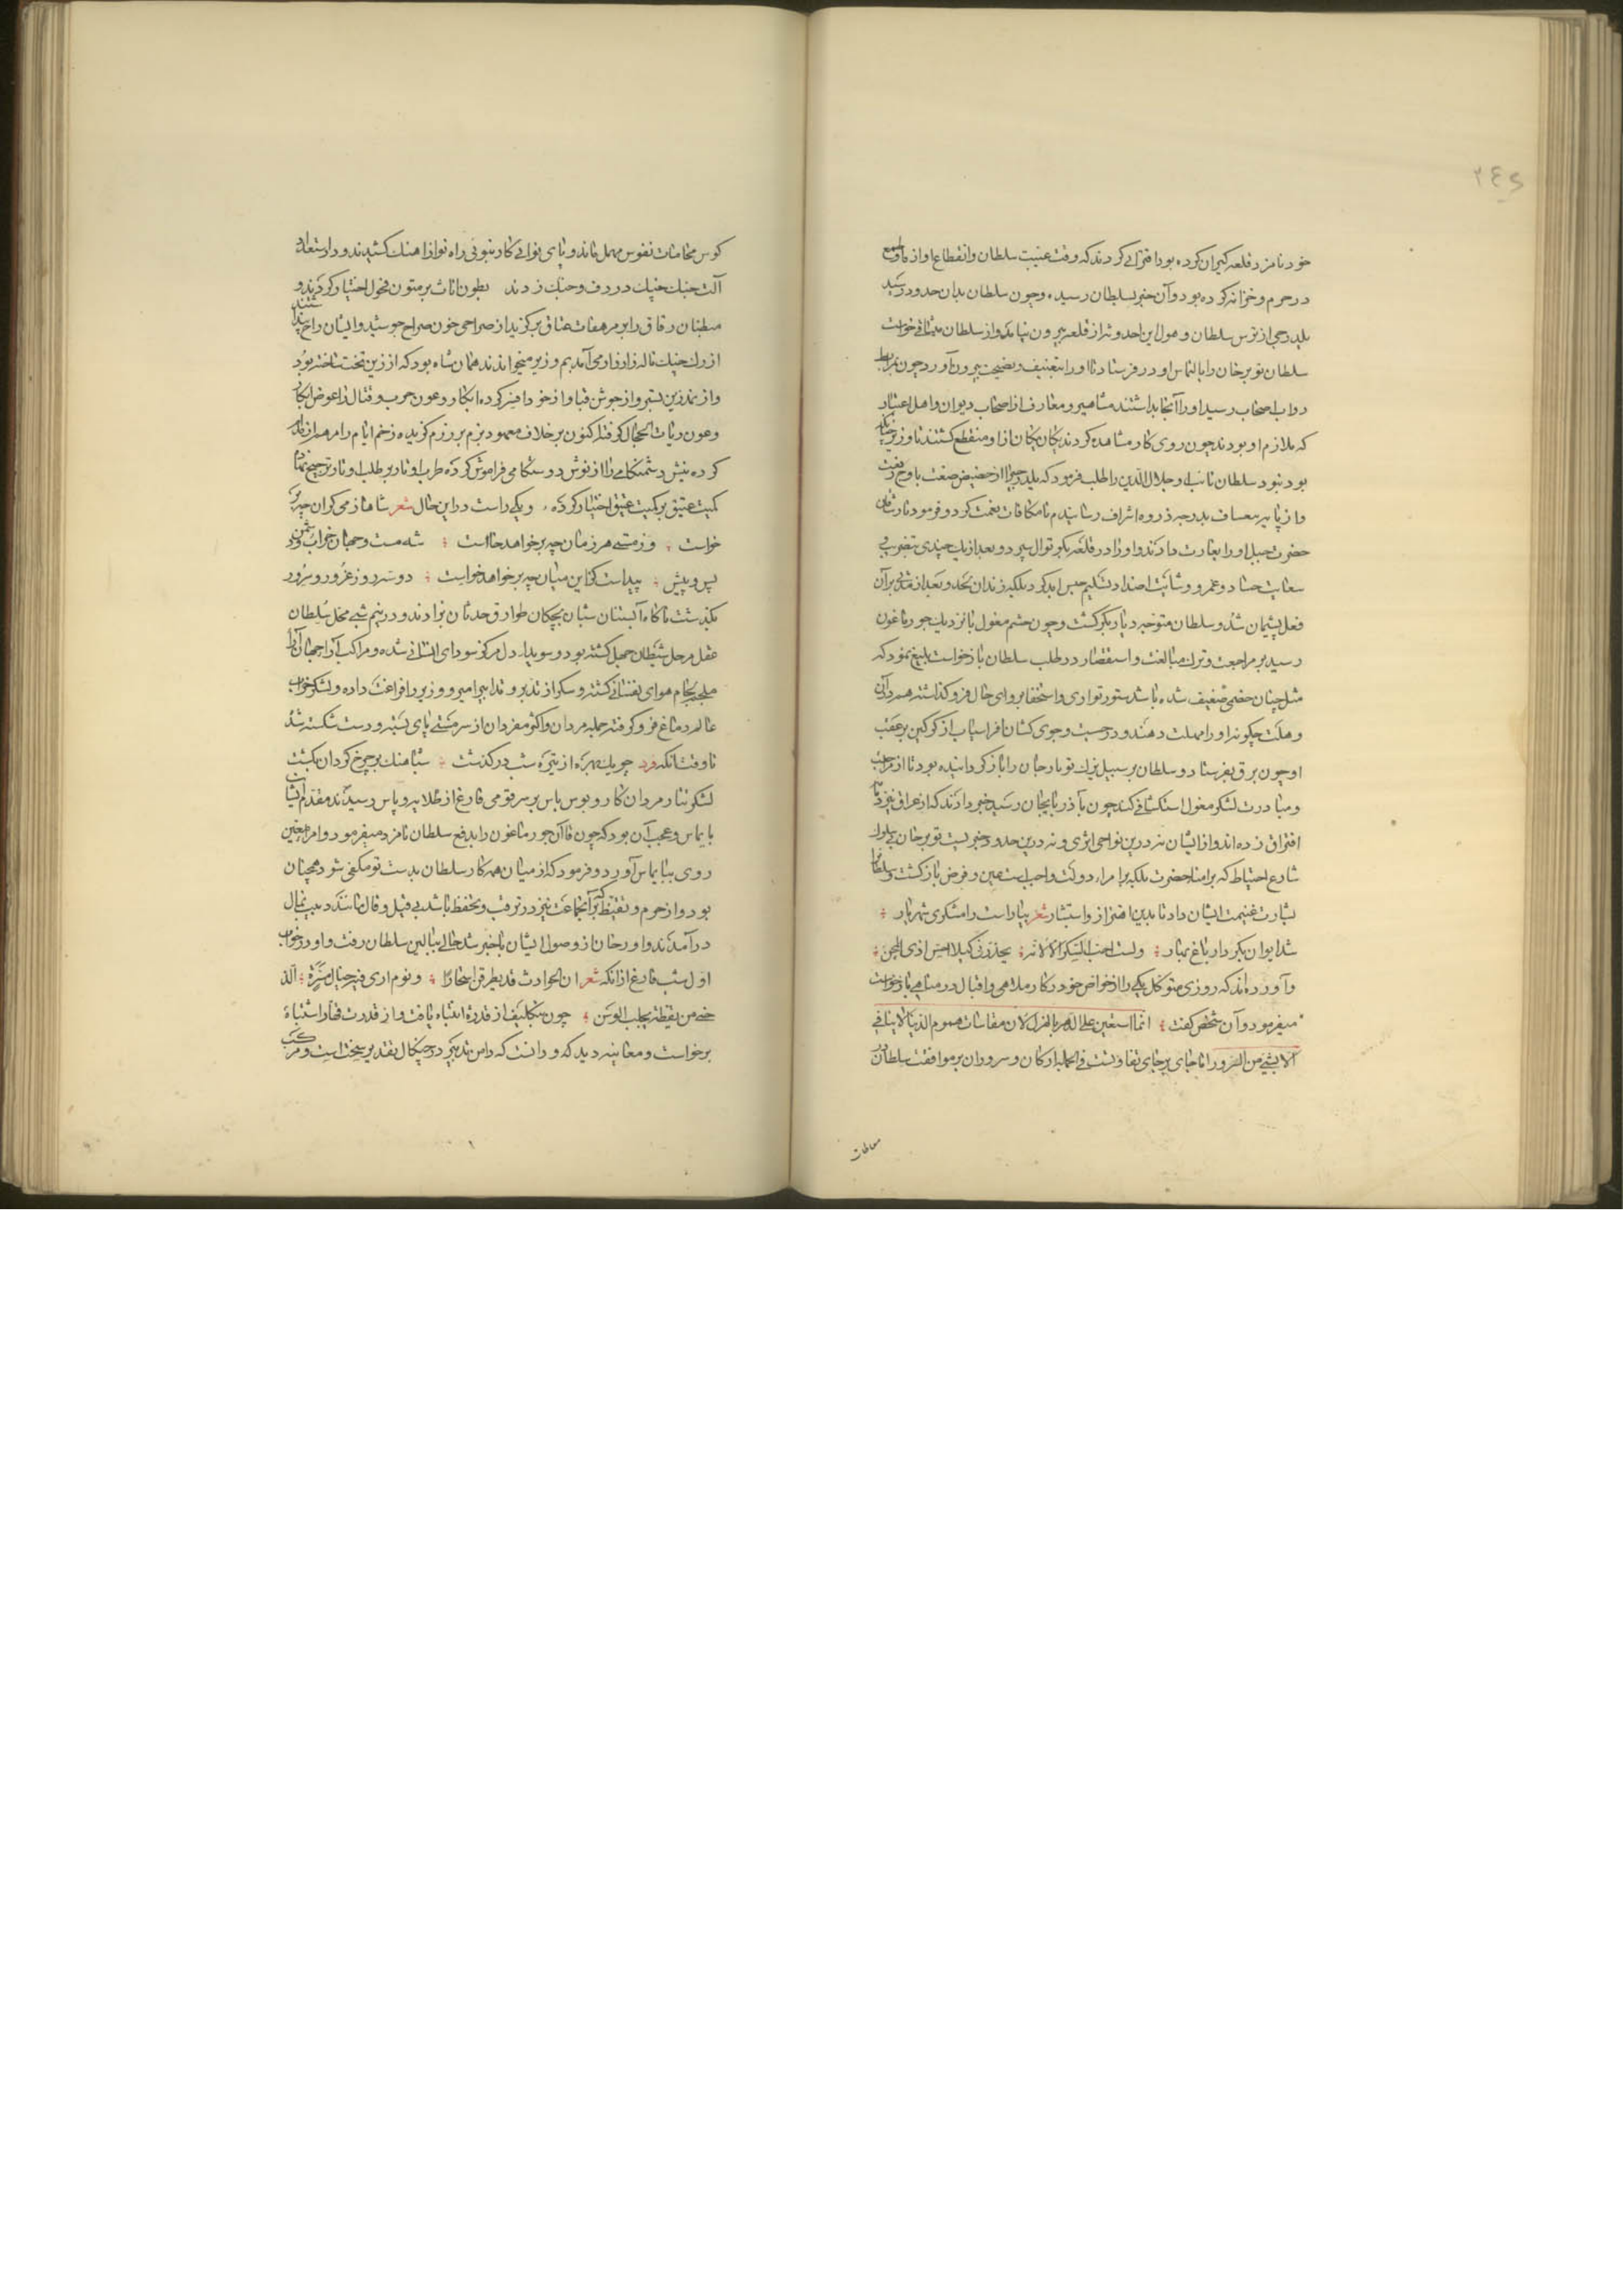 ۲۴۵
خود نامزد قلعه کیران کرده بود افترائی کردند که وقت غیبت سلطان و انقطاع او از ما طمع
در حرم و خزانه کرده بود و آن خبر بسلطان رسید. و چون سلطان بدان حدود رسید
یلدرجی از ترس سلطان و هول این احدوثه از قلعه بیرون نیامد و از سلطان میثاقی خواست
سلطان بوبر خان را بالتماس او در فرستاد تا او را بتعنیف و نصیحت بیرون آورد چون بمرابط
دواب اصحاب رسید او را آنجا بداشتند مشاهیر و معارف از اصحاب دیوان و اهل اعتبار
که ملازم او بودند چون روی کار مشاهده کردند یکان یکان ازو منقطع گشتند تا وزیر چنانکه
بود نبود سلطان نایب او جلال الدین را طلب فرمود که یلدرجی را از حضیض ضعت باوج رفعت
و از پایه بعساف بدرجه ذروه اشراف رسانیدم تا مکافات نعمت کرد و فرمود تا
حضرت جمیل او را بغارت دادند و او را در قلعه بکوتوال سپرد و بعد از یک چندی بتضریب
سعایت حساد و غمر و وشایت اضداد تسلیم حبس ابد کرد بلکه زندان لحد و بعد از مدتی بر آن
فعل پشیمان شد و سلطان متوجه دیار بکر گشت و چون حشم مغول با نزدیک جورماغون
رسید بر مراجعت و ترک مبالغت و استقصا در طلب سلطان بازخواست بلیغ نمود که
مثل چنان خصمی ضعیف شده باشد ستور تواری و استخفا بر وای حال فرو گذاشته هم در آن
وهلت چگونه او را مهلت دهند و در جست و جوی کشان افراسیاب از گرگین بر عقب
او چون برق بفرستاد و سلطان بر سبیل یزک بوبر خان را باز گردانیده بود تا از مراجعت
و مبادرت لشکر مغول استکشافی کند چون بآذربایجان رسید خبر دادند که از عراق نیز دم
افتراق زده‌اند و از ایشان نه درین نواحی اثری و نه درین حدود خبریست بوبر خان بی سلوک
شارع احتیاط که بر امنا حضرت بلکه بر امراء دولت واجبست عین و فرض بازگشت و سلطان را
بشارت غنیمت ایشان داد تا بدین اهتزاز و استبشار شعر بیاراست رامشگری شهریار
شد ایوان بکردار باغ بهار ولست احب السکر الا لانه یخدرنی کیلا احس اذی المحن
و آورده‌اند که روزی متوکل یکی را از خواص خود در کار ملاهی و اقبال در مناهی بازخواست
میفرمود و آن شخص گفت انما استعین علی الدهر بالهزل لان مقاسات هموم الدنیا لا یتأتی
الا بشیء من السرور اما جای بر جای تفاوتست فی الجمله ارکان و سروران بر موافقت سلطان در
معاطات
کوس مخامات نفوس مهمل ماند و نای بوای کار بتوبی راه نو از آهنک کشیدند و در استعداد
آلت جنک چنک در دف و چنک زدند بطون اناث بر متون فحول اختیار کردند و
مبطنان رقاق را بر مرهفات عتاق برگزید از صراحی خون صراح جوشید و ایشان راح پنداشتند
از رک چنک ناله زار زار می‌آمد بم و زیر میخواندند همان شاه بود که از زین تخت ساخته بود
و از نمدزین بستر و از جوشن قبا و از خود افسر کرده ابکار و عون حرب و قتال را عوض ابکار
و عون ربات الحجال گرفته اکنون بر خلاف معهود بزم بر رزم گزیده زخم ایام را مرهم از مدام
کرده نیش دشمنکامی را از نوش دوستکامی فراموش کرده طرب اوتار بر طلب اوتار ترجیح نهاده
کمیت عتیق بر کمیت عتیق اختیار کرده، و یکی راست در این حال شعر شاها ز می گران چه بر
خواست وز مستی هر زمان چه بر خواهد خاست شه مست و جهان خراب و دشمن
پس و پیش پیداست کزین میان چه بر خواهد خواست دو سه روز غرور و سرور
بگذشت ناگاه آبستنان شبان بچگان طوارق حدثان بزادند و در نیم شبی محل سلطان
عقل مرحل شیطان جهل گشته بود و سویداء دل مرکز سودای انسانی شده و مراکب آرا جهال آنرا
ملجم بلجام هوای نفسانی گشته و سکر از تدبر و تدابیر امیر و وزیر را فراغت داده و لشکر خواب
عالم دماغ فرو گرفته جمله مردان و اکثر مفردان از سر مستی پای بسته و دست شکسته شد
تا وقت آنکه فرد چو یک بهره از تیره شب در گذشت شباهنگ بر چرخ گردان بگشت
لشکر تتار مردان کار و بوس باس بر سر قومی فارغ از طلایه و پاس رسیدند مقدم ایشان
بایماس و عجب آن بود که چون قاآن جورماغون را بدفع سلطان نامزد میفرمود و امرا معین
روی ببایماس آورد و فرمود که از میان همه کار سلطان بدست تو مکفی شود همچنان
بود و از حزم و تیقظ که بر آنجماعت نیز در ترقب و تحفظ باشد بی قیل و قال مانند دبیب نمال
درآمدند و اورخان از وصول ایشان با خبر شد حالی ببالین سلطان رفت و او در خواب
اول شب فارغ از انکه شعر ان الحوادث قد یطرقن اسحارا و نوم اری فیه حبال مسرة الذ
من یقظة یجلب الوسن چون بتکالیف از قدرة انتباه یافت و از قدرت فتار استباه
برخواست و معاینه دید که و دانست که دامن تدبیر در چنگال تقدیر سخت است و مرکب